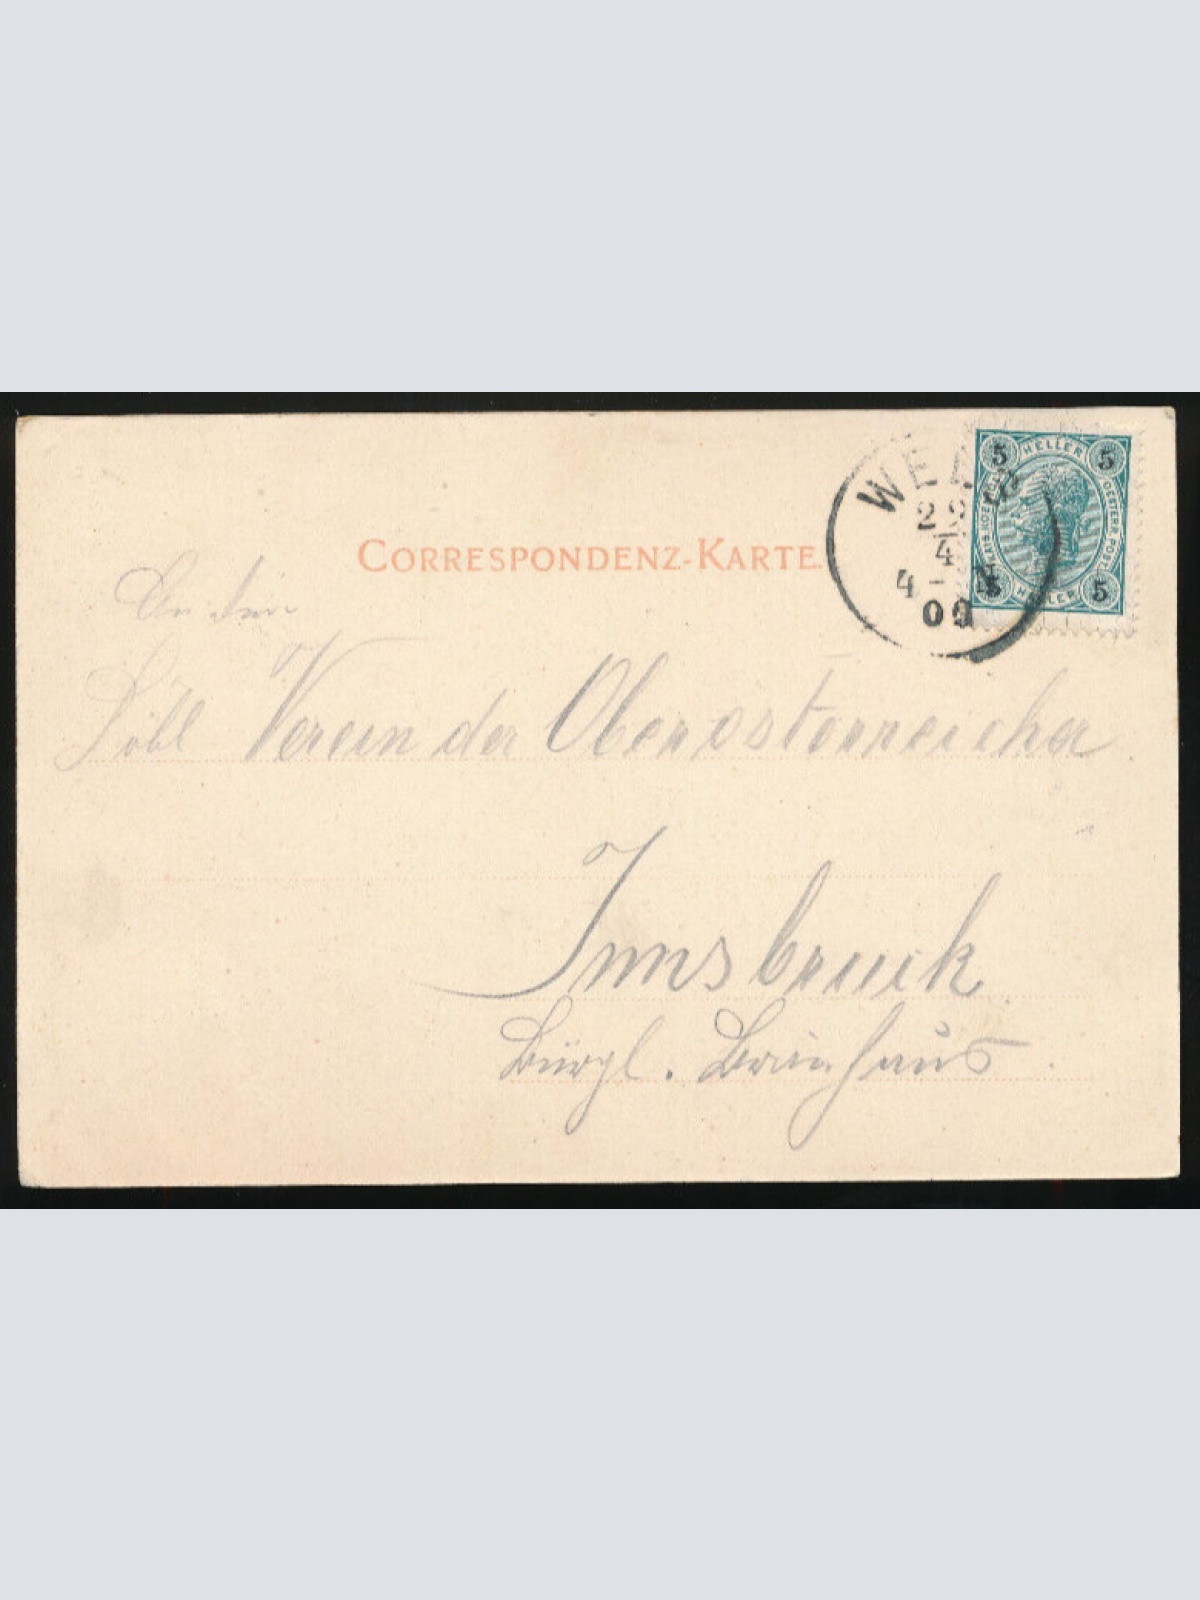 CORRESPONDENZ-KARTE.
WELS
22
4
4 - N
00
5 HELLER 5
OESTERR. POST
5 HELLER 5
An den
Löbl. Verein der Oberösterreicher
Innsbruck
Bürgl. Bräuhaus.